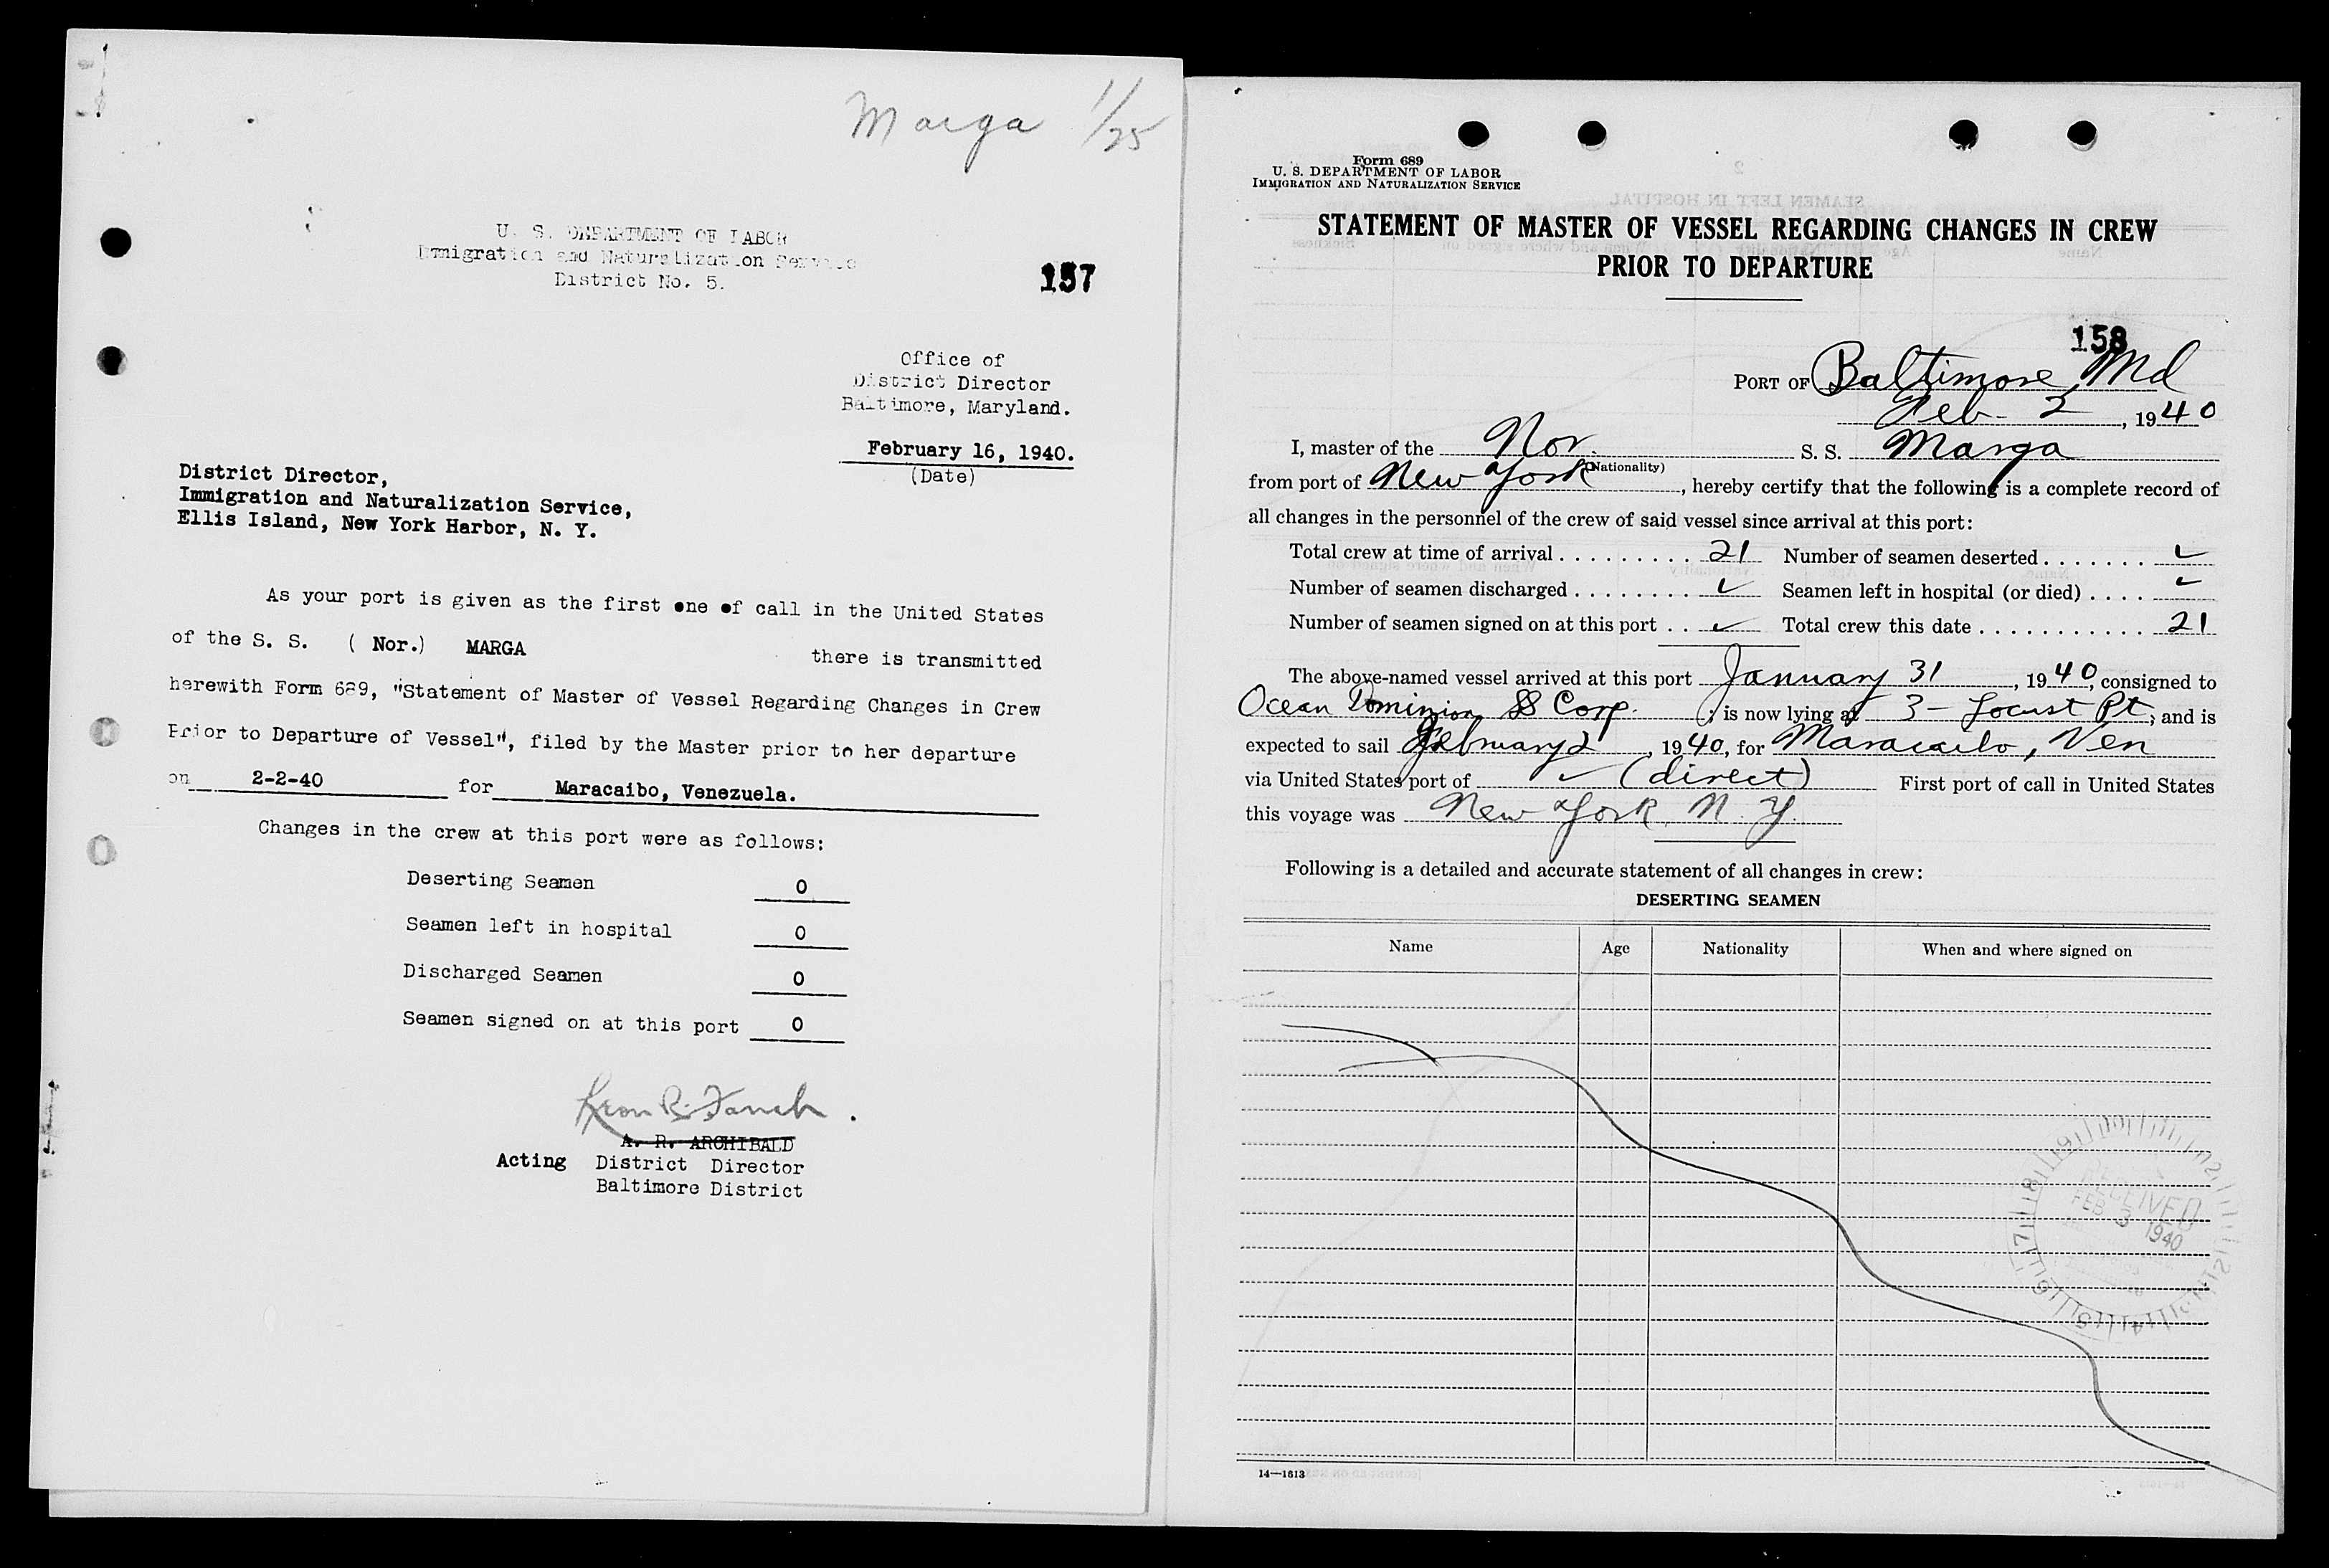 Marga 1/25
U. S. DEPARTMENT OF LABOR
Immigration and Naturalization Service
District No. 5.
157
Office of
District Director
Baltimore, Maryland.
February 16, 1940.
(Date)
District Director,
Immigration and Naturalization Service,
Ellis Island, New York Harbor, N. Y.
As your port is given as the first one of call in the United States
of the S. S. ( Nor.) MARGA there is transmitted
herewith Form 689, "Statement of Master of Vessel Regarding Changes in Crew
Prior to Departure of Vessel", filed by the Master prior to her departure
on 2-2-40 for Maracaibo, Venezuela.
Changes in the crew at this port were as follows:
Deserting Seamen 0
Seamen left in hospital 0
Discharged Seamen 0
Seamen signed on at this port 0
Leon R.
A. R. ARCHIBALD
Acting District Director
Baltimore District
Form 689
U. S. DEPARTMENT OF LABOR
IMMIGRATION AND NATURALIZATION SERVICE
STATEMENT OF MASTER OF VESSEL REGARDING CHANGES IN CREW
PRIOR TO DEPARTURE
158
PORT OF Baltimore, Md
Feb - 2, 1940
I, master of the Nor. S. S. Marga
(Nationality)
from port of New York, hereby certify that the following is a complete record of
all changes in the personnel of the crew of said vessel since arrival at this port:
Total crew at time of arrival . . . . . . . . . . 21 Number of seamen deserted . . . . . . . ✓
Number of seamen discharged . . . . . . . . ✓ Seamen left in hospital (or died) . . . . ✓
Number of seamen signed on at this port . . ✓ Total crew this date . . . . . . . . . . . 21
The above-named vessel arrived at this port January 31, 1940, consigned to
Ocean Dominion SS Corp., is now lying at 3 - Locust Pt; and is
expected to sail February 2, 1940, for Maracaibo, Ven
via United States port of ✓ (direct) First port of call in United States
this voyage was New York, N. Y.
Following is a detailed and accurate statement of all changes in crew:
DESERTING SEAMEN
Name Age Nationality When and where signed on
RECEIVED
FEB 3 1940
14—1613